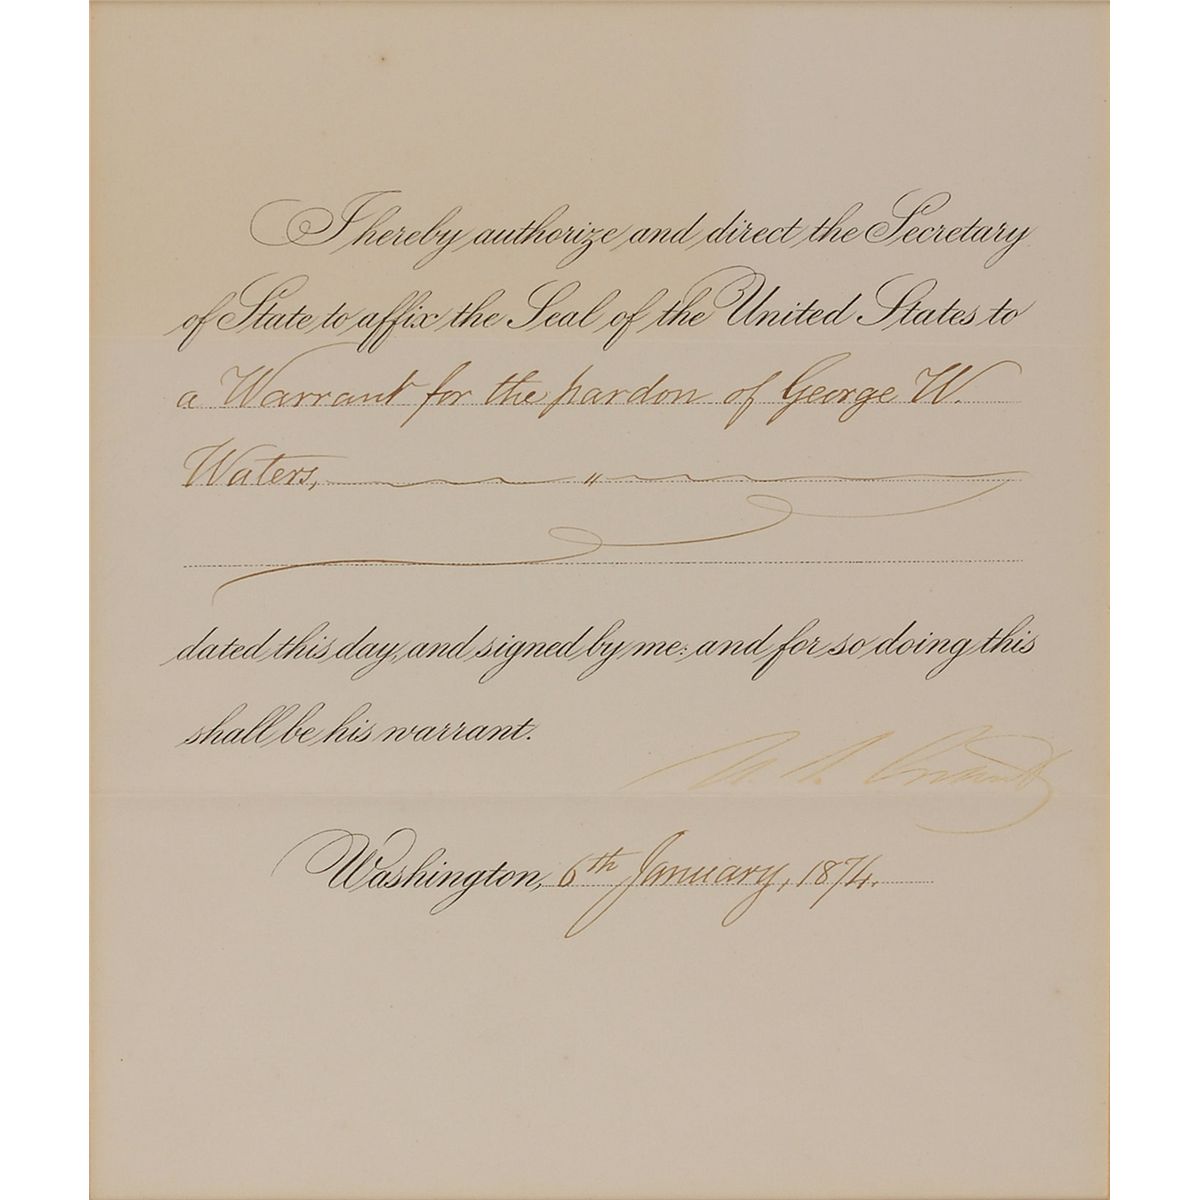 I hereby authorize and direct the Secretary
of State to affix the Seal of the United States to
a Warrant for the pardon of George W.
Waters, "
dated this day, and signed by me: and for so doing this
shall be his warrant.
U. S. Grant
Washington, 6th January, 1874.